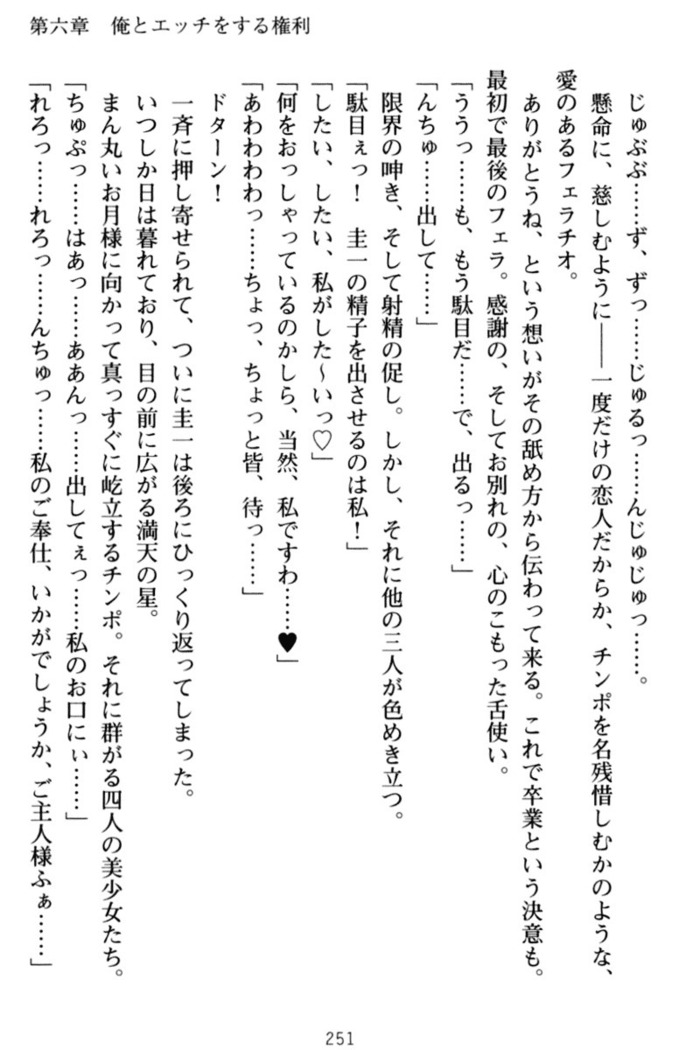 第六章　俺とエッチをする権利
じゅぶぶ……ず、ずっ……じゅるっ……んじゅじゅっ……。
懸命に、慈しむように――一度だけの恋人だからか、チンポを名残惜しむかのような、
愛のあるフェラチオ。
ありがとうね、という想いがその舐め方から伝わって来る。これで卒業という決意も。
最初で最後のフェラ。感謝の、そしてお別れの、心のこもった舌使い。
「ううっ……も、もう駄目だ……で、出るっ……」
「んちゅ……出して……」
限界の呻き、そして射精の促し。しかし、それに他の三人が色めき立つ。
「駄目ぇっ！　圭一の精子を出させるのは私！」
「したい、したい、私がした～いっ♡」
「何をおっしゃっているのかしら、当然、私ですわ……♥」
「あわわわわっ……ちょっ、ちょっと皆、待っ……」
ドターン！
一斉に押し寄せられて、ついに圭一は後ろにひっくり返ってしまった。
いつしか日は暮れており、目の前に広がる満天の星。
まん丸いお月様に向かって真っすぐに屹立するチンポ。それに群がる四人の美少女たち。
「ちゅぷっ……はあっ……ああんっ……出してぇっ……私のお口にぃ……」
「れろっ……れろっ……んちゅっ……私のご奉仕、いかがでしょうか、ご主人様ふぁ……」
251